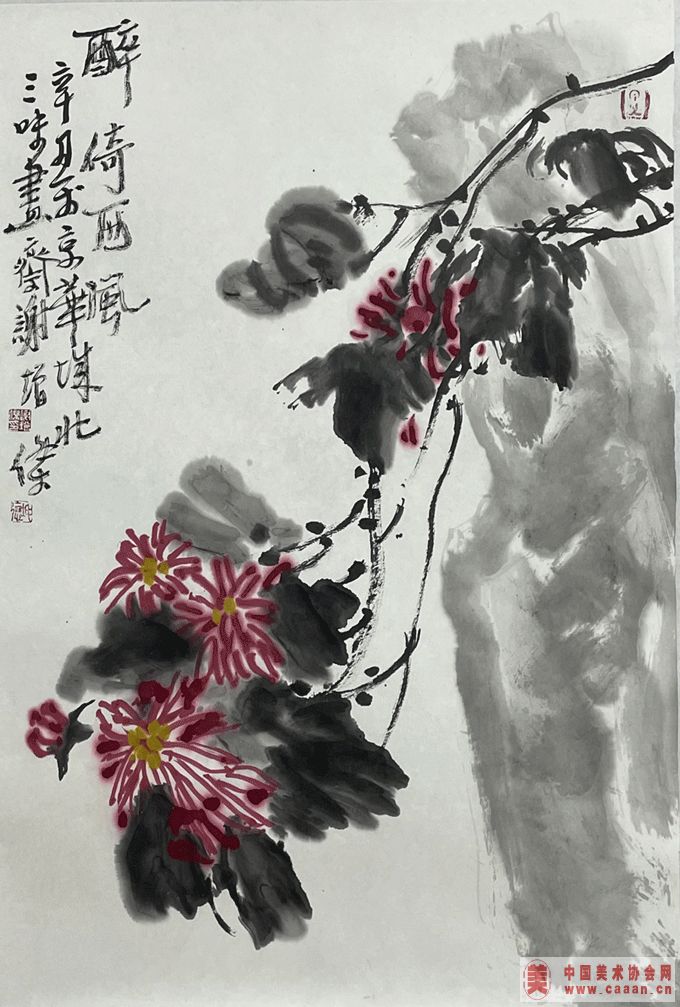 醉倚西风
辛丑于京华城北
三味画斋谢增杰
中国美术协会网
www.caaan.cn